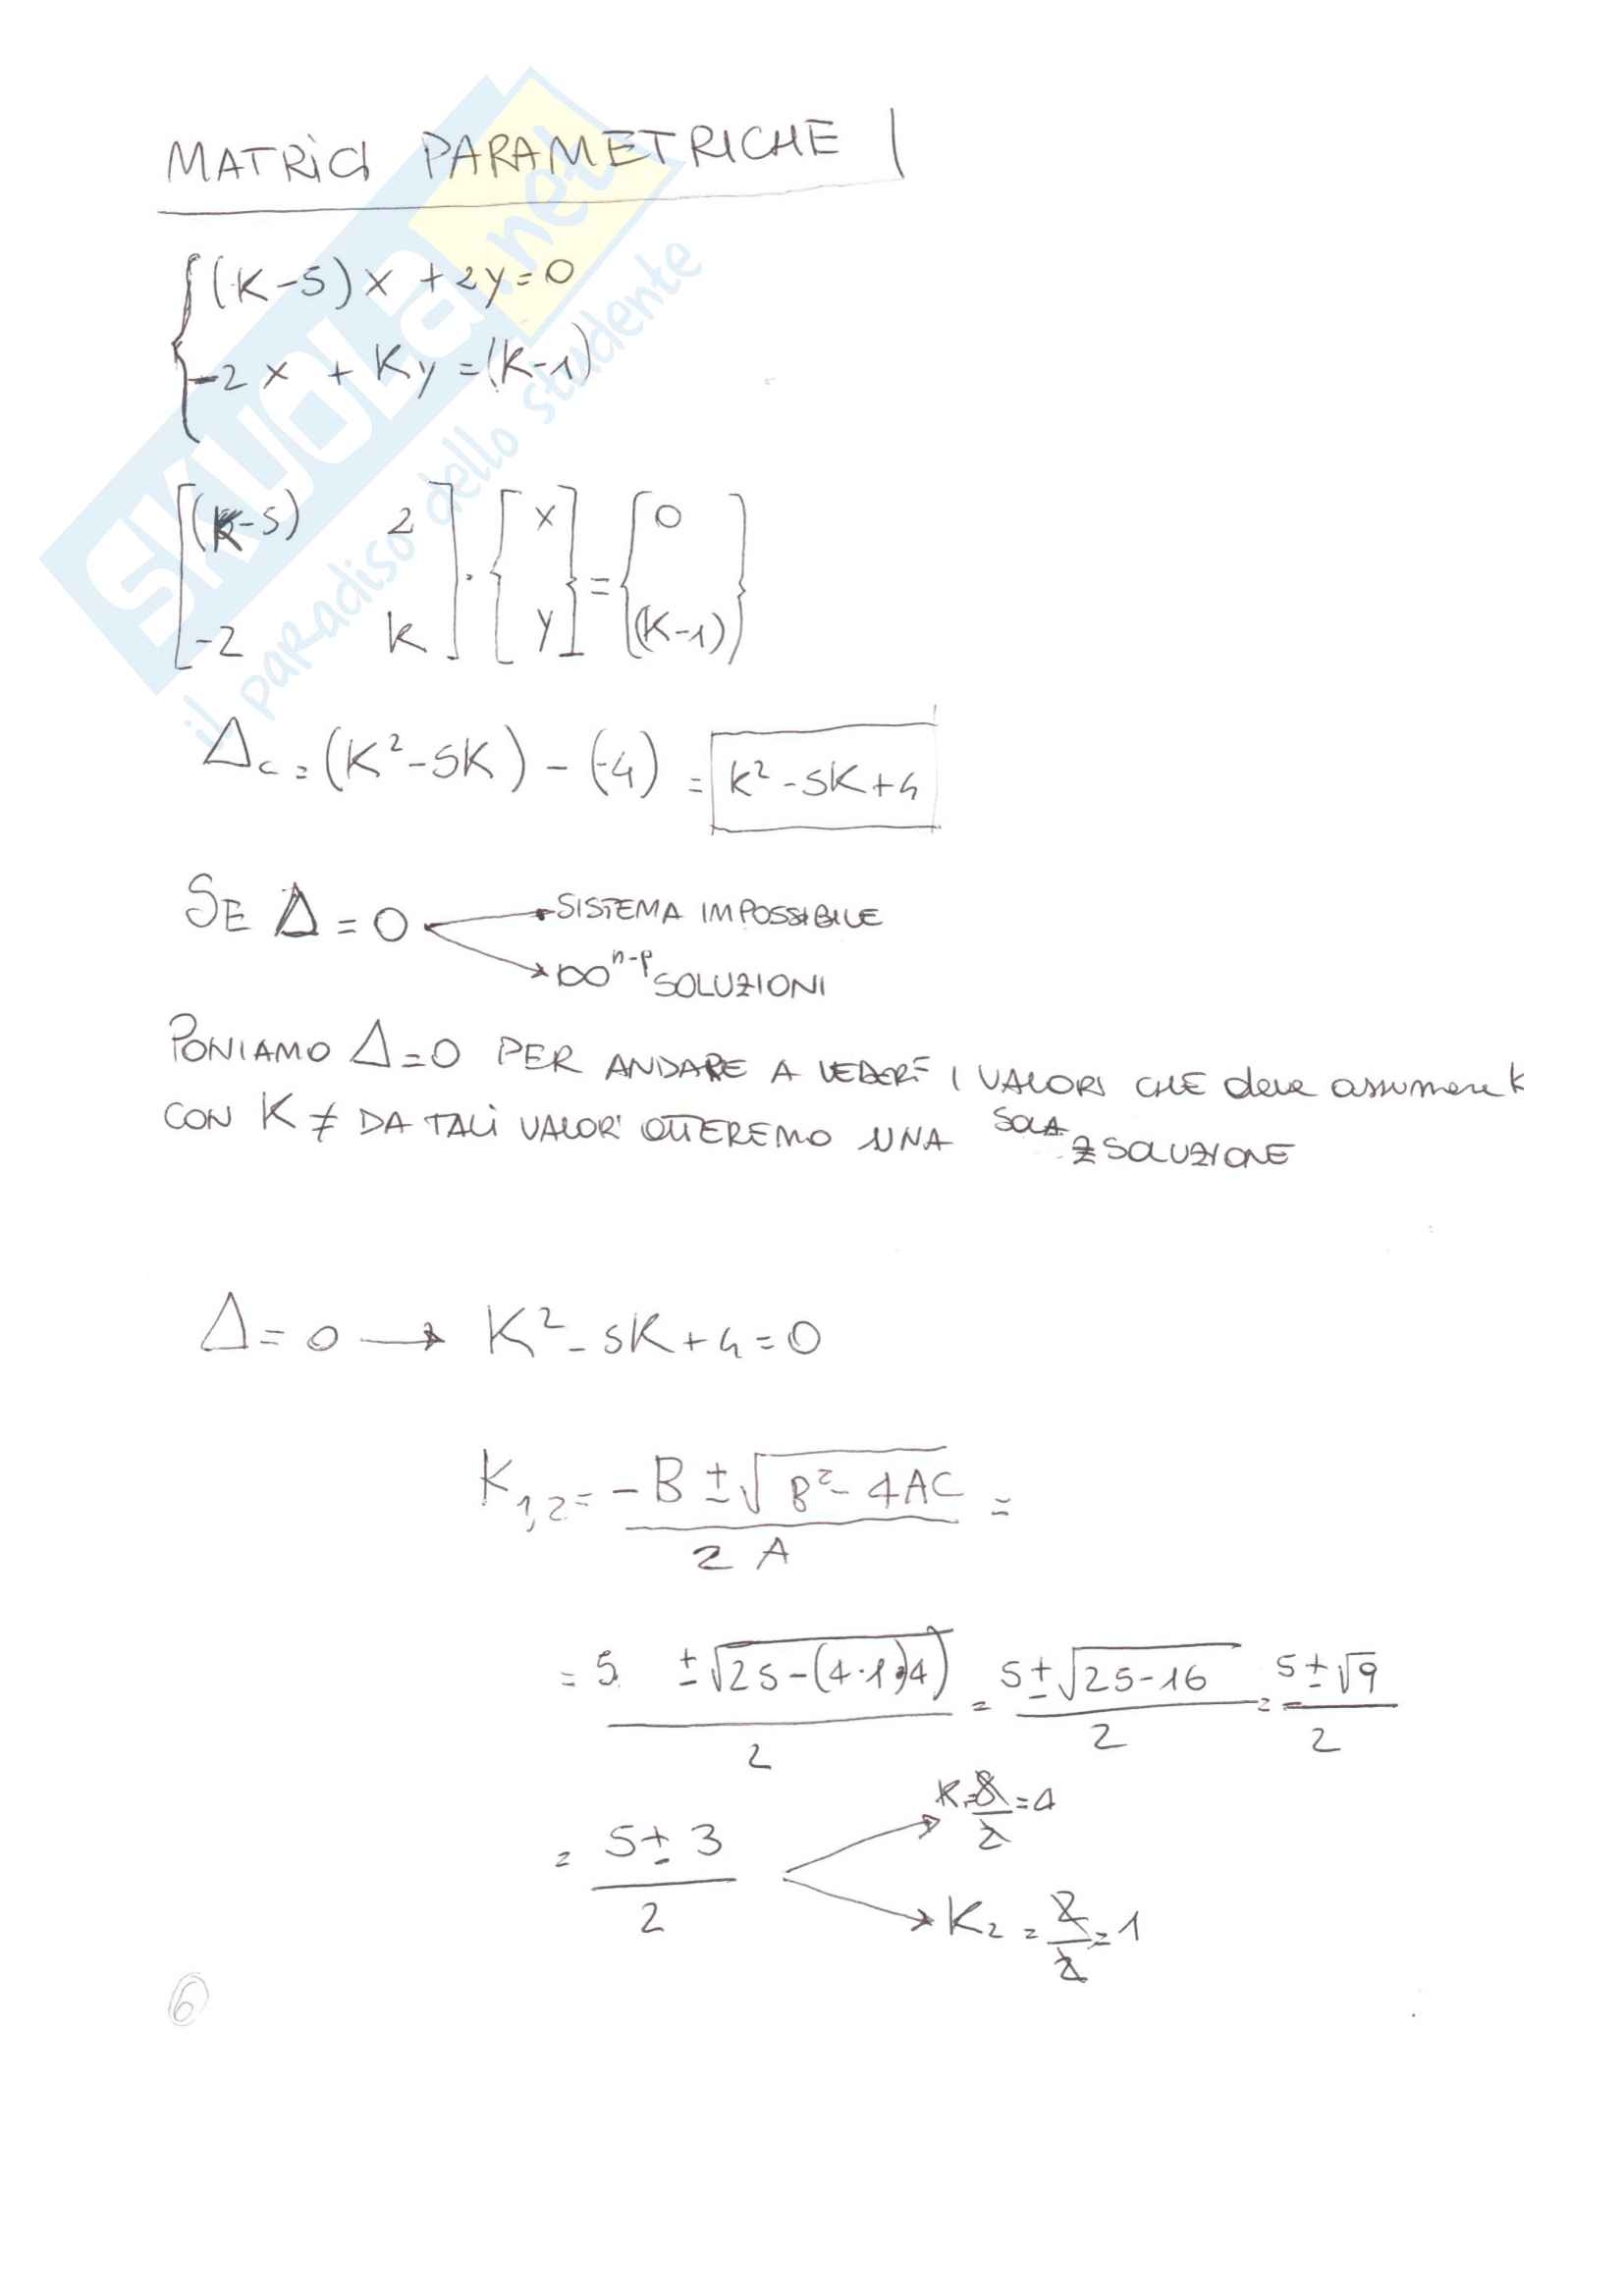 MATRICI PARAMETRICHE
(K-5)x +2y=0
-2x + Ky =(K-1)
[(K-5) 2] · [x] = [0]
[-2 K] [y] [(K-1)]
Δc = (K²-5K) - (-4) = K²-5K+4
SE Δ=0 → SISTEMA IMPOSSIBILE
→ ∞ⁿ⁻ᵖ SOLUZIONI
PONIAMO Δ=0 PER ANDARE A VEDERE I VALORI CHE deve assumere k
CON K ≠ DA TALI VALORI OTTEREMO UNA SOLA SOLUZIONE
Δ=0 → K²-5K+4=0
K1,2 = (-B ± √(B²-4AC)) / 2A =
= (5 ± √(25-(4·1·4))) / 2 = (5 ± √(25-16)) / 2 = (5 ± √9) / 2
= (5 ± 3) / 2 → K=8/2=4
→ K2 = 2/2 = 1
6
SKUOLA.net
il paradiso dello studente